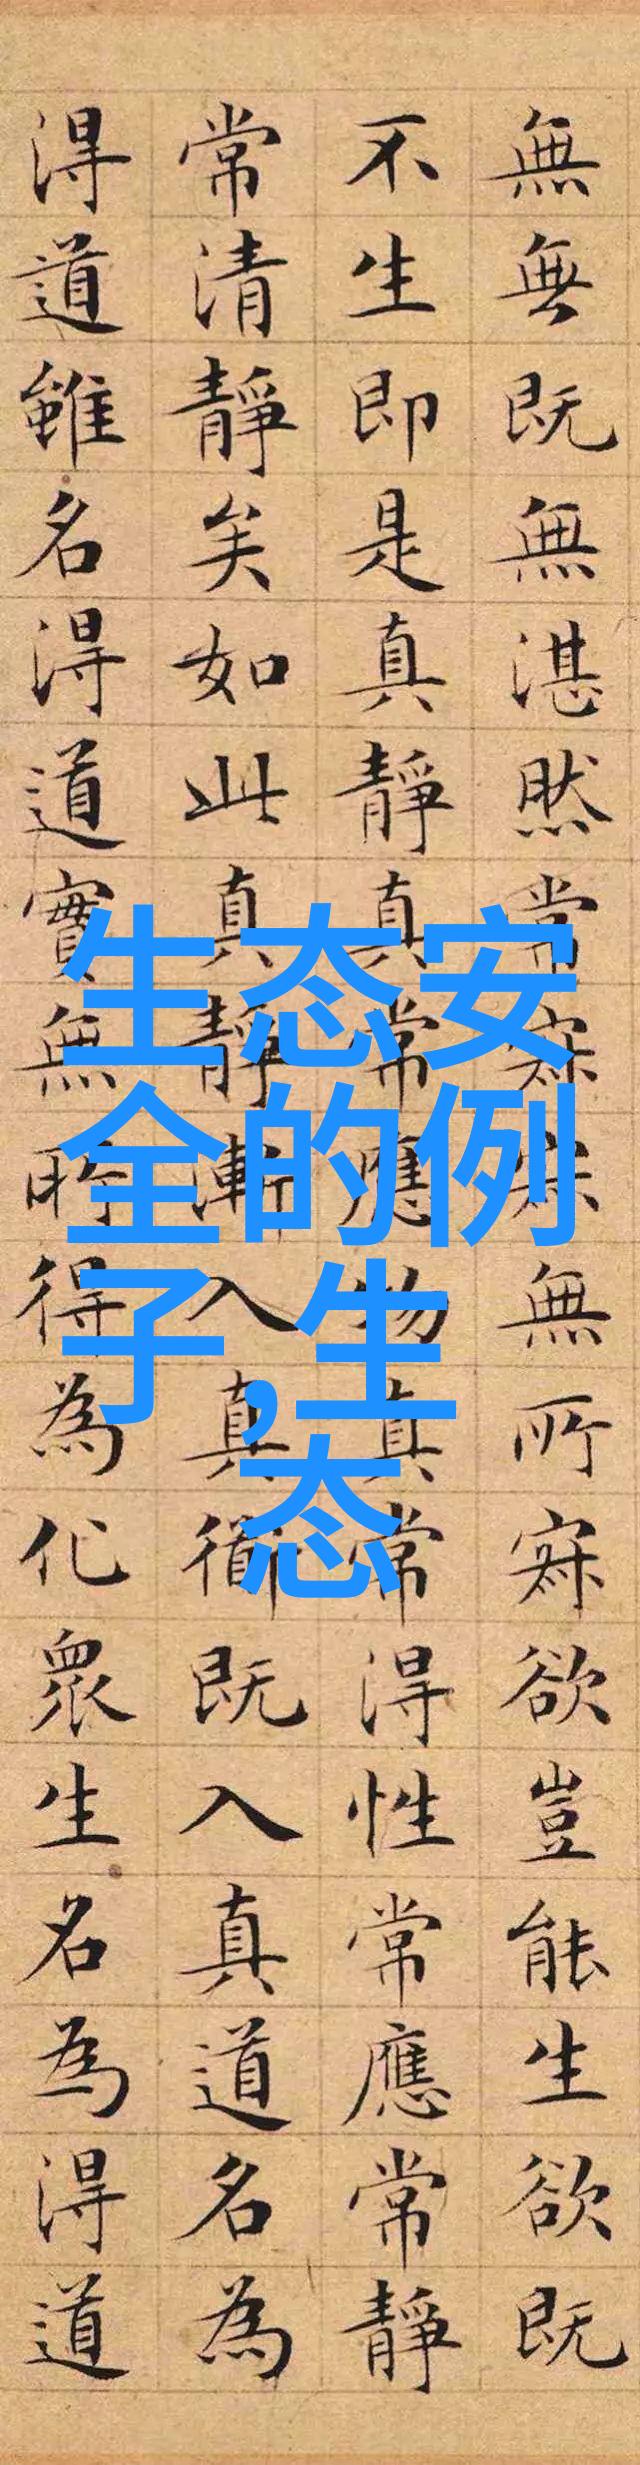 無無既無湛然常寂寂無所寂欲豈能生欲既
不生即是真靜真常應物真常得性常應常靜
常清靜矣如此真靜漸入真衜既入真道名為
得道雖名得道實無所得為化衆生名為得道
生态安
全的例
子,生
态